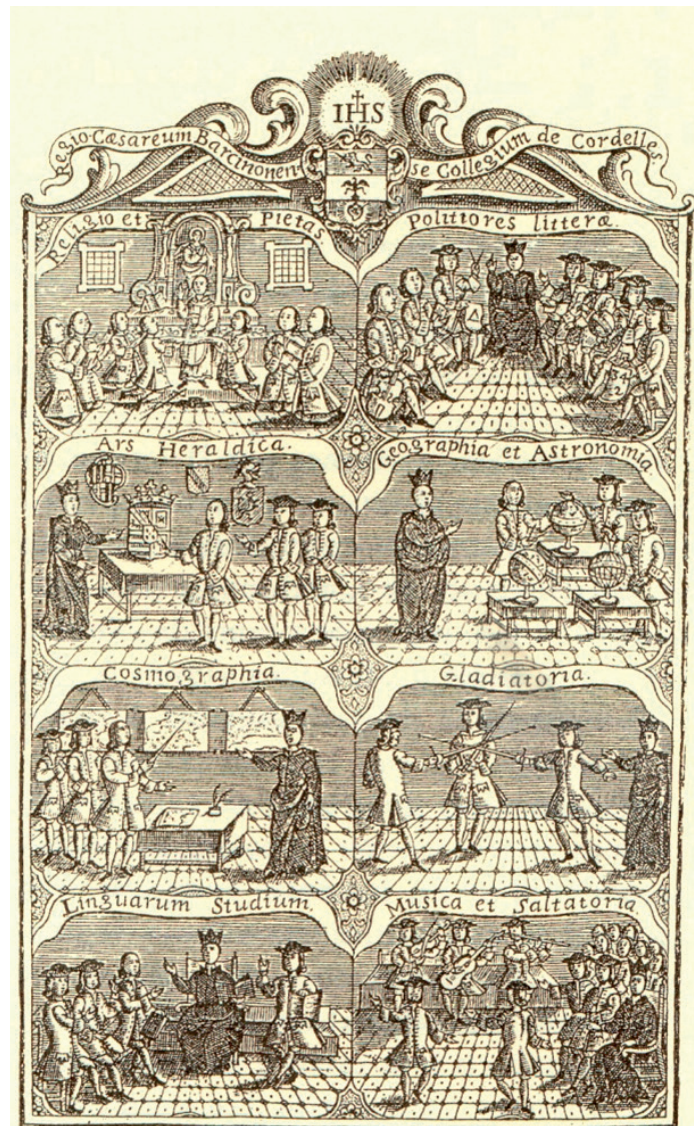 IHS
Regio-Cæsareum Barcinonen-
se Collegium de Cordelles
Religio et Pietas.
Polittores litteræ.
Ars Heraldica.
Geographia et Astronomia
Cosmographia.
Gladiatoria.
Linguarum Studium.
Musica et Saltatoria